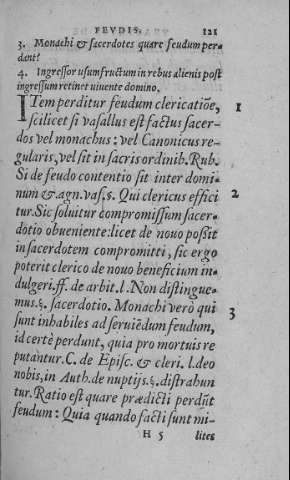 FEVDIS. 121
3. Monachi & sacerdotes quare feudum per-
dant?
4. Ingressor usumfructum in rebus alienis post
ingressum retinet uiuente domino.
ITem perditur feudum clericatiōe, 1
scilicet si vasallus est factus sacer-
dos vel monachus: vel Canonicus re-
gularis, vel sit in sacris ordinib. Rub.
Si de feudo contentio sit inter domi-
num & agn. vas. §. Qui clericus effici 2
tur. Sic soluitur compromissum sacer-
dotio obueniente: licet de nouo possit
in sacerdotem compromitti, sic ergo
poterit clerico de nouo beneficium in-
dulgeri. ff. de arbit. l. Non distingue-
mus. §. sacerdotio. Monachi verò qui 3
sunt inhabiles ad seruiēdum feudum,
id certè perdunt, quia pro mortuis re
putantur. C. de Episc. & cleri. l. deo
nobis, in Auth. de nuptijs. §. distrahun
tur. Ratio est quare prædicti perdūt
feudum: Quia quando facti sunt mi-
H 5 lites